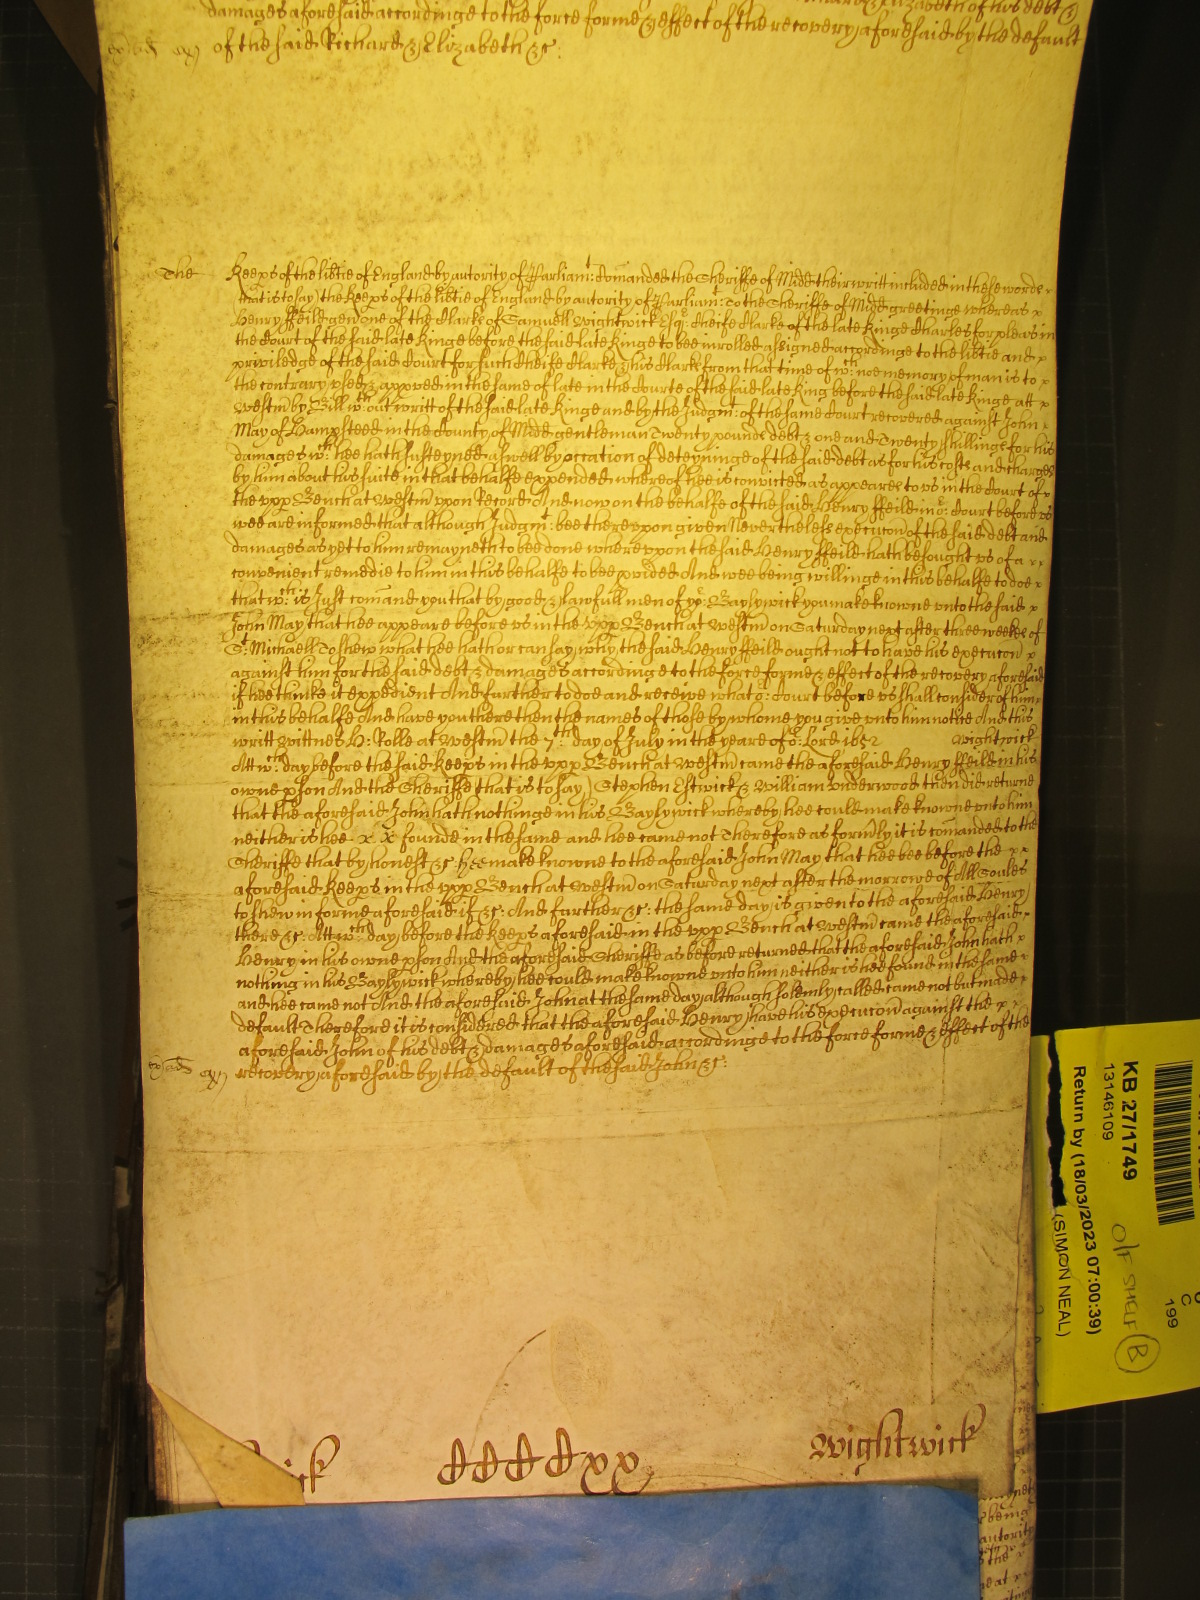 damages aforesaid accordinge to the force forme & effect of the recovery aforesaid by the default
of the said Richard & Elizabeth &c:
The Keeps of the libtie of England by autority of Parliamt: comanded the Sheriffe of Midd their writt included in these words
that is to say) the Keeps of the libtie of England by autority of Parliamt: To the Sheriffe of Midd greetinge whereas x
Henry ffeild gen one of the Clarks of Samuell Wightwick Esqr: cheife Clarke of the late Kinge Charles for pleas in
the Court of the said late Kinge before the said late Kinge to bee inrolled assigned accordinge to the libtie and x
priviledge of the said Court for such cheife Clarke & his Clarks from that time of wch: noe memory of man is to x
the contrary vsed & appoved in the same of late in the Courte of the said late King before the said late Kinge att x
Westm by Bill wth: out writt of the said late Kinge and by the Judgmt: of the same Court recovered against John
May of Hampsteed in the County of Midd gentleman Twenty pounds debt & one and Twenty shillings for his
damages wch: hee hath susteyned aswell by occation of deteyninge of the said debt as for his costs and charges
by him about his suite in that behalfe expended whereof hee is convicted as appeares to vs in the Court of
the vpp Bench at Westm vpon Record And now on the behalfe of the said Henry ffeild in or: Court before vs
wee are informed that although Judgmt: bee therevpon given Nevertheless execucon of the said debt and
damages as yet to him remayneth to bee done wherevpon the said Henry ffeild hath besought vs of a
convenient remedie to him in this behalfe to bee pvided And wee being willinge in this behalfe to doe
that wch: is Just comand you that by good & lawfull men of yor: Baylywick you make knowne vnto the said x
John May that hee appeare before vs in the vpp Bench at Westm on Saturday next after three weekes of
St: Michaell To shew what hee hath or can say why the said Henry ffeild ought not to have his execucon x
against him for the said debt & damages accordinge to the force forme & effect of the recovery aforesaid
if hee thinke it expedient And further to doe and receive what or: Court before vs shall consider of him
in this behalfe And have you there then the names of those by whome you give vnto him notice And this
writt Wittnes H: Rolle at Westm the 7th: day of July in the yeare of or: Lord 1652 Wightwick
Att wch: day before the said Keeps in the vpp Bench at Westm came the aforesaid Henry ffeild in his
owne pson And the Sheriffe that is to say) Stephen Estwick & William vnderwood then did returne
that the aforesaid John hath nothinge in his Baylywick whereby hee could make knowne vnto him
neither is hee x x founde in the same and hee came not Therefore as formly it is comanded to the
Sheriffe that by honest &c hee make knowne to the aforesaid John May that hee bee before the x x
aforesaid Keeps in the vpp Bench at Westm on Saturday next after the morrowe of All Soules
to shew in forme aforesaid if &c: And further &c: the same day is given to the aforesaid Henry
there &c: Att wch: day before the Keeps aforesaid in the vpp Bench at Westm came the aforesaid
Henry in his owne pson And the aforesaid Sheriffe as before returned that the aforesaid John hath x
nothing in his Baylywick whereby hee could make knowne vnto him neither is hee found in the same
and hee came not And the aforesaid John at the same day although solemly called came not but made
default Therefore it is considered that the aforesaid Henry have his execucon against the x
aforesaid John of his debt & damages aforesaid accordinge to the force forme & effect of the
recovery aforesaid by the default of the said John &c:
CCCCxx
Wightwick
KB 27/1749
13146109
Return by (18/03/2023 07:00:39)
(SIMON NEAL)
O/F SHELF
B
C
199